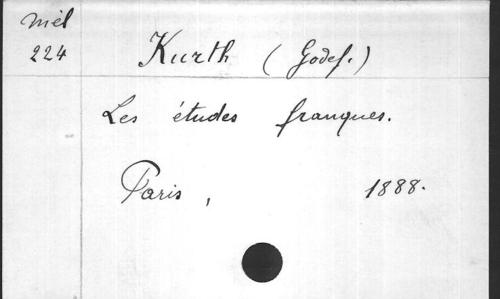 Mél
224
Kurth (Godef.)
Les études franques.
Paris, 1888.